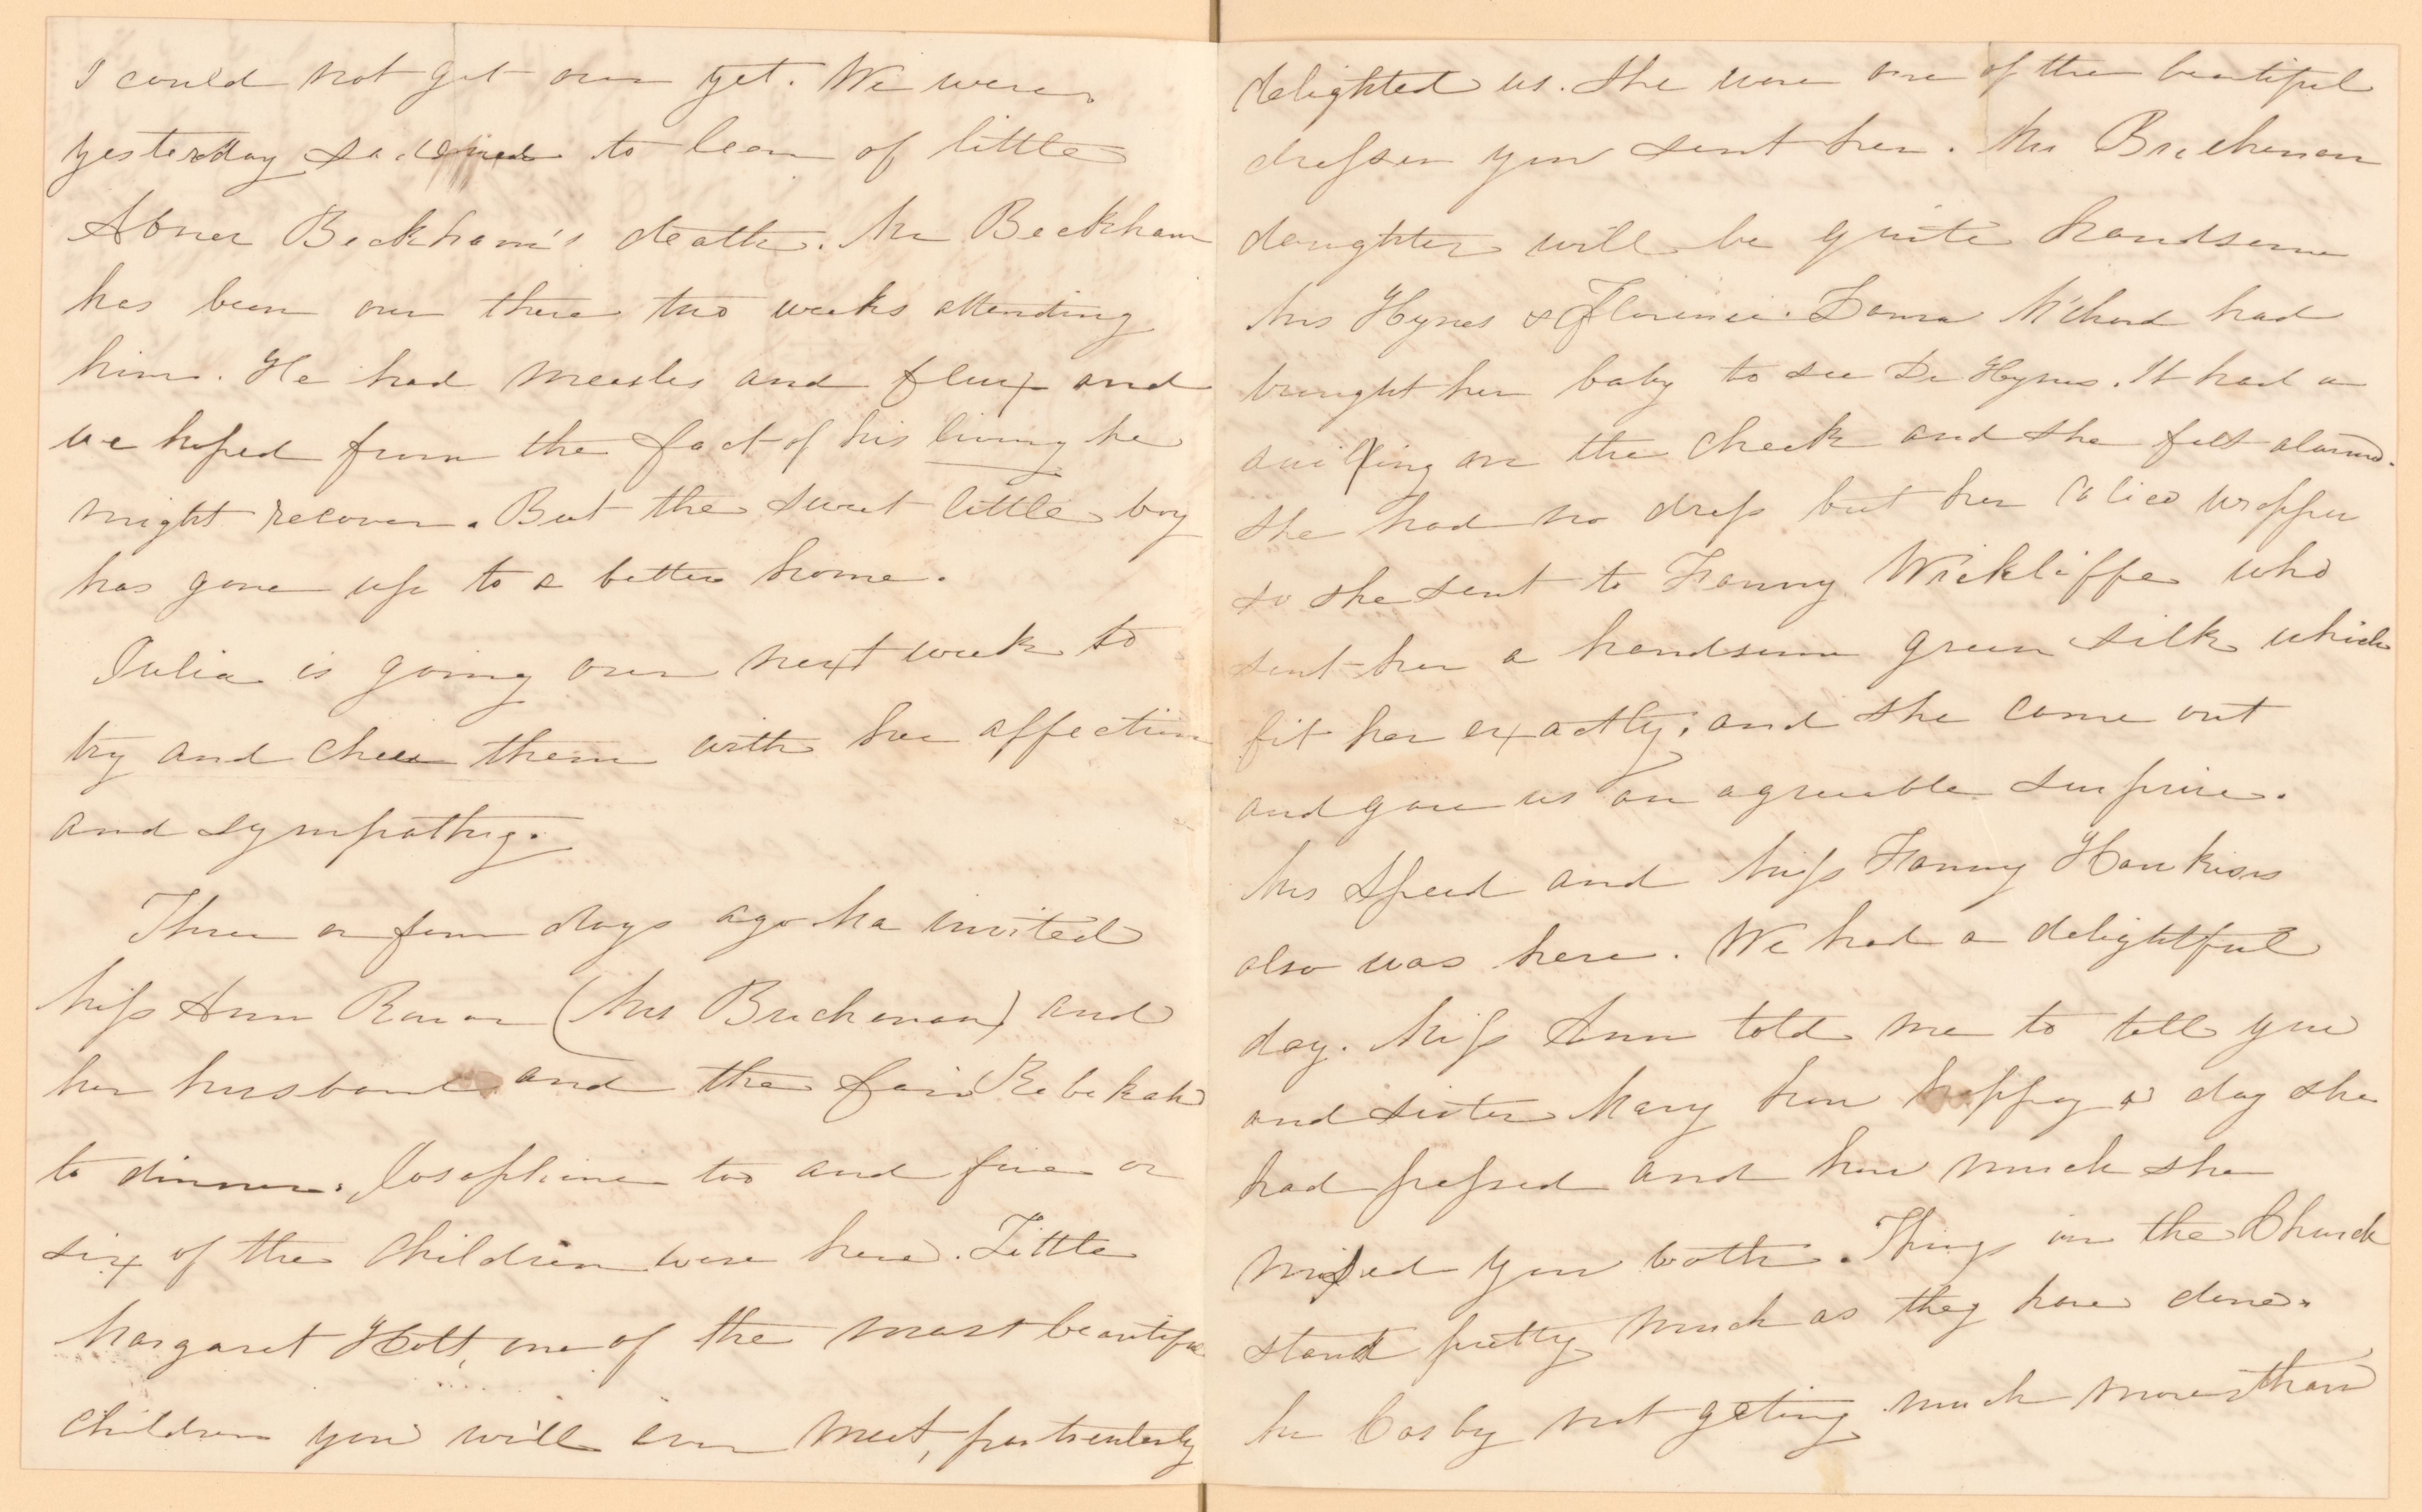 I could not get over yet. We were
yesterday saddened to learn of little
Abner Beckham's death. Mr Beckham
has been over there two weeks attending
him. He had measles and flux and
we hoped from the fact of his living he
might recover. But the sweet little boy
has gone up to a better home.
Julia is going over next week to
try and cheer them with her affection
and sympathy.
Three or four days ago Ma invited
Miss Ann Rowan (Mrs Buchanan) and
her husband and the fair Rebekah
to dinner. Josephine too and five or
six of the children were here. Little
Margaret Holt, one of the most beautiful
children you will ever meet, particularly
delighted us. She wore one of the beautiful
dresses you sent her. Mrs Buchanan
daughter will be quite handsome
Mrs Hynes & Florence. Donna had
brought her baby to see Dr Hynes. It had a
on the cheek and she felt alarmed.
She had no dress but her calico wrapper
so she sent to Fanny Wickliffe who
sent her a handsome green silk which
fit her exactly; and she come out
and gave us an agreeable surprise.
Mrs Speed and Miss Fanny Hawkins
also was here. We had a delightful
day. Miss Ann told me to tell you
and sister Mary how happy a day she
had passed and how much she
missed you both. Things in the Church
stand pretty much as they have done.
Mr Cosby not geting much more than